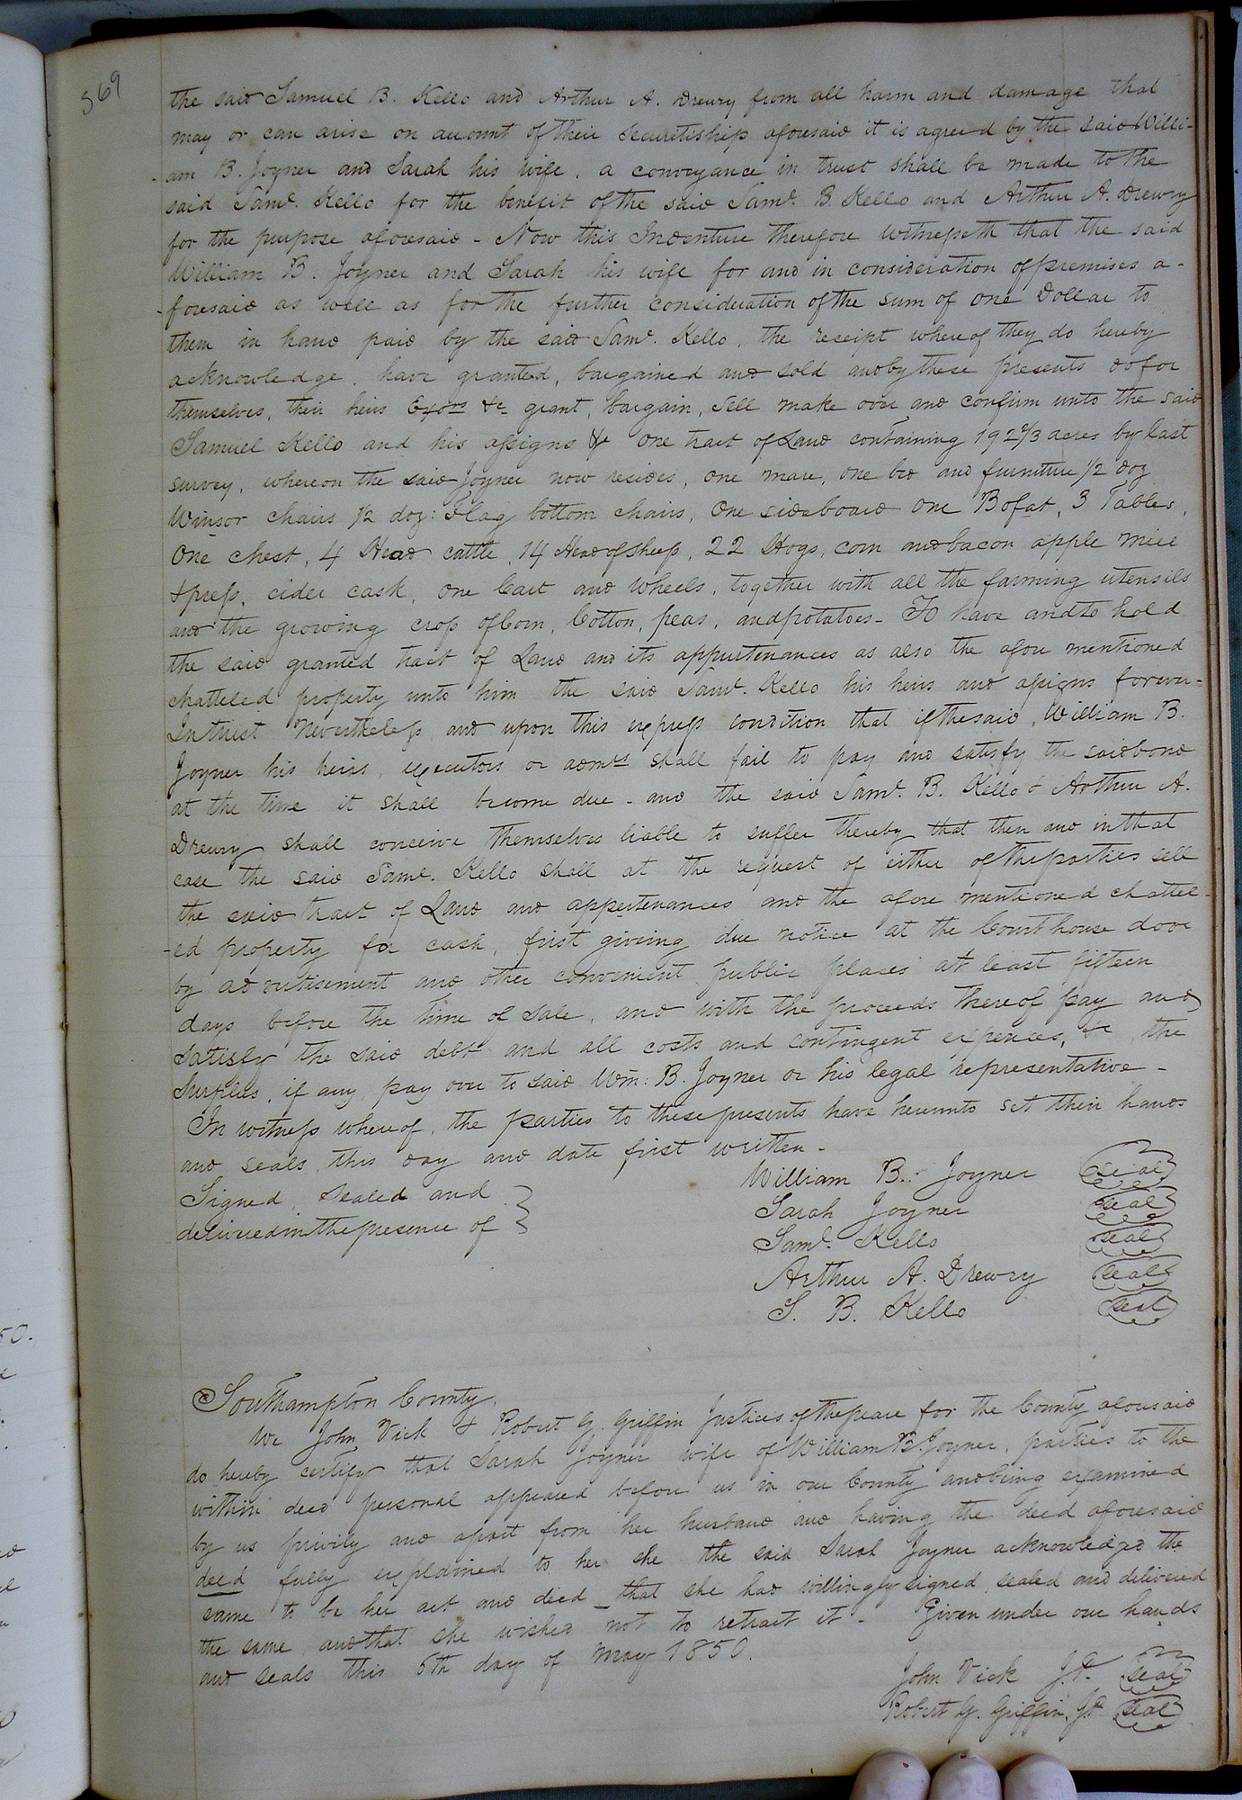 569
the said Samuel B. Kello and Arthur A. Drewry from all harm and damage that
may or can arise on account of their securetiship aforesaid it is agreed by the said Willi-
-am B. Joyner and Sarah his wife, a conveyance in trust shall be made to the
said Saml. Kello for the benefit of the said Saml. B. Kello and Arthur A. Drewry
for the purpose aforesaid - Now this Indenture therefore witnesseth that the said
William B. Joyner and Sarah his wife for and in consideration of premises a-
-foresaid as well as for the further consideration of the sum of one Dollar to
them in hand paid by the said Saml. Kello, the receipt whereof they do hereby
acknowledge, have granted, bargained and sold and by these presents do for
themselves, their heirs Exors &c grant, bargain, sell make over and confirm unto the said
Samuel Kello and his assigns &c one tract of Land containing 192 2/3 acres by last
survey, whereon the said Joyner now resides, one mare, one bed and furniture 1/2 doz
Winsor chairs 1/2 doz: Flag bottom chairs, One sideboard one Bofat, 3 Tables,
One chest, 4 Head cattle, 14 Head of sheep, 22 Hogs, corn and bacon apple mill
& press, cider cask, one Cart and wheels, together with all the farming utensils
and the growing crop of Corn, Cotton, peas, and potatoes - To have and to hold
the said granted tract of Land and its appurtenances as also the afore mentioned
chatteled property unto him the said Saml. Kello his heirs and assigns forever-
In trust Nevertheless and upon this express condition that if the said William B.
Joyner his heirs, executors or admrs shall fail to pay and satisfy the said bond
at the time it shall become due - and the said Saml. B. Kello & Arthur A.
Drewry shall conceive themselves liable to suffer thereby that then and in that
case the said Saml. Kello shall at the request of either of the parties sell
the said tract of Land and appertenances and the afore mentioned chattel-
-ed property for cash, first giving due notice at the Courthouse door
by advertisement and other convenient public places at least fifteen
days before the time of sale, and with the proceeds thereof pay and
satisfy the said debt and all costs and contingent expences, &c the
surplus, if any pay over to said Wm: B. Joyner or his legal representative -
In witness whereof, the parties to these presents have hereunto set their hands
and seals this day and date first written -
Signed, sealed and
delivered in the presence of
William B. Joyner seal
Sarah Joyner seal
Saml. Kello seal
Arthur A. Drewry seal
S. B. Kello seal
Southampton County,
We John Vick & Robert G. Griffin Justices of the peace for the County aforesaid
do hereby certify that Sarah Joyner wife of William B. Joyner, parties to the
within deed personal appeared before us in our County and being examined
by us privily and apart from her husband and having the deed aforesaid
deed fully explained to her she the said Sarah Joyner acknowledged the
same to be her act and deed - that she had willingly signed, sealed and delivered
the same, and that she wished not to retract it - Given under our hands
and seals this 6th day of May 1850.
John Vick J.P. seal
Robert G. Griffin, J.P. seal